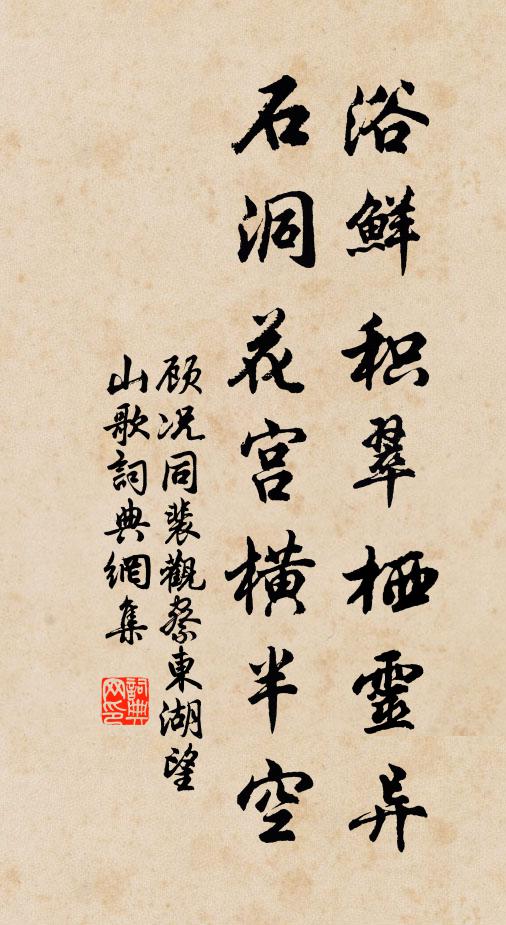 浴鮮积翠栖靈异
石洞花宫橫半空
顾况同裴觀察東湖望
山歌詞典網集
詞典
网印